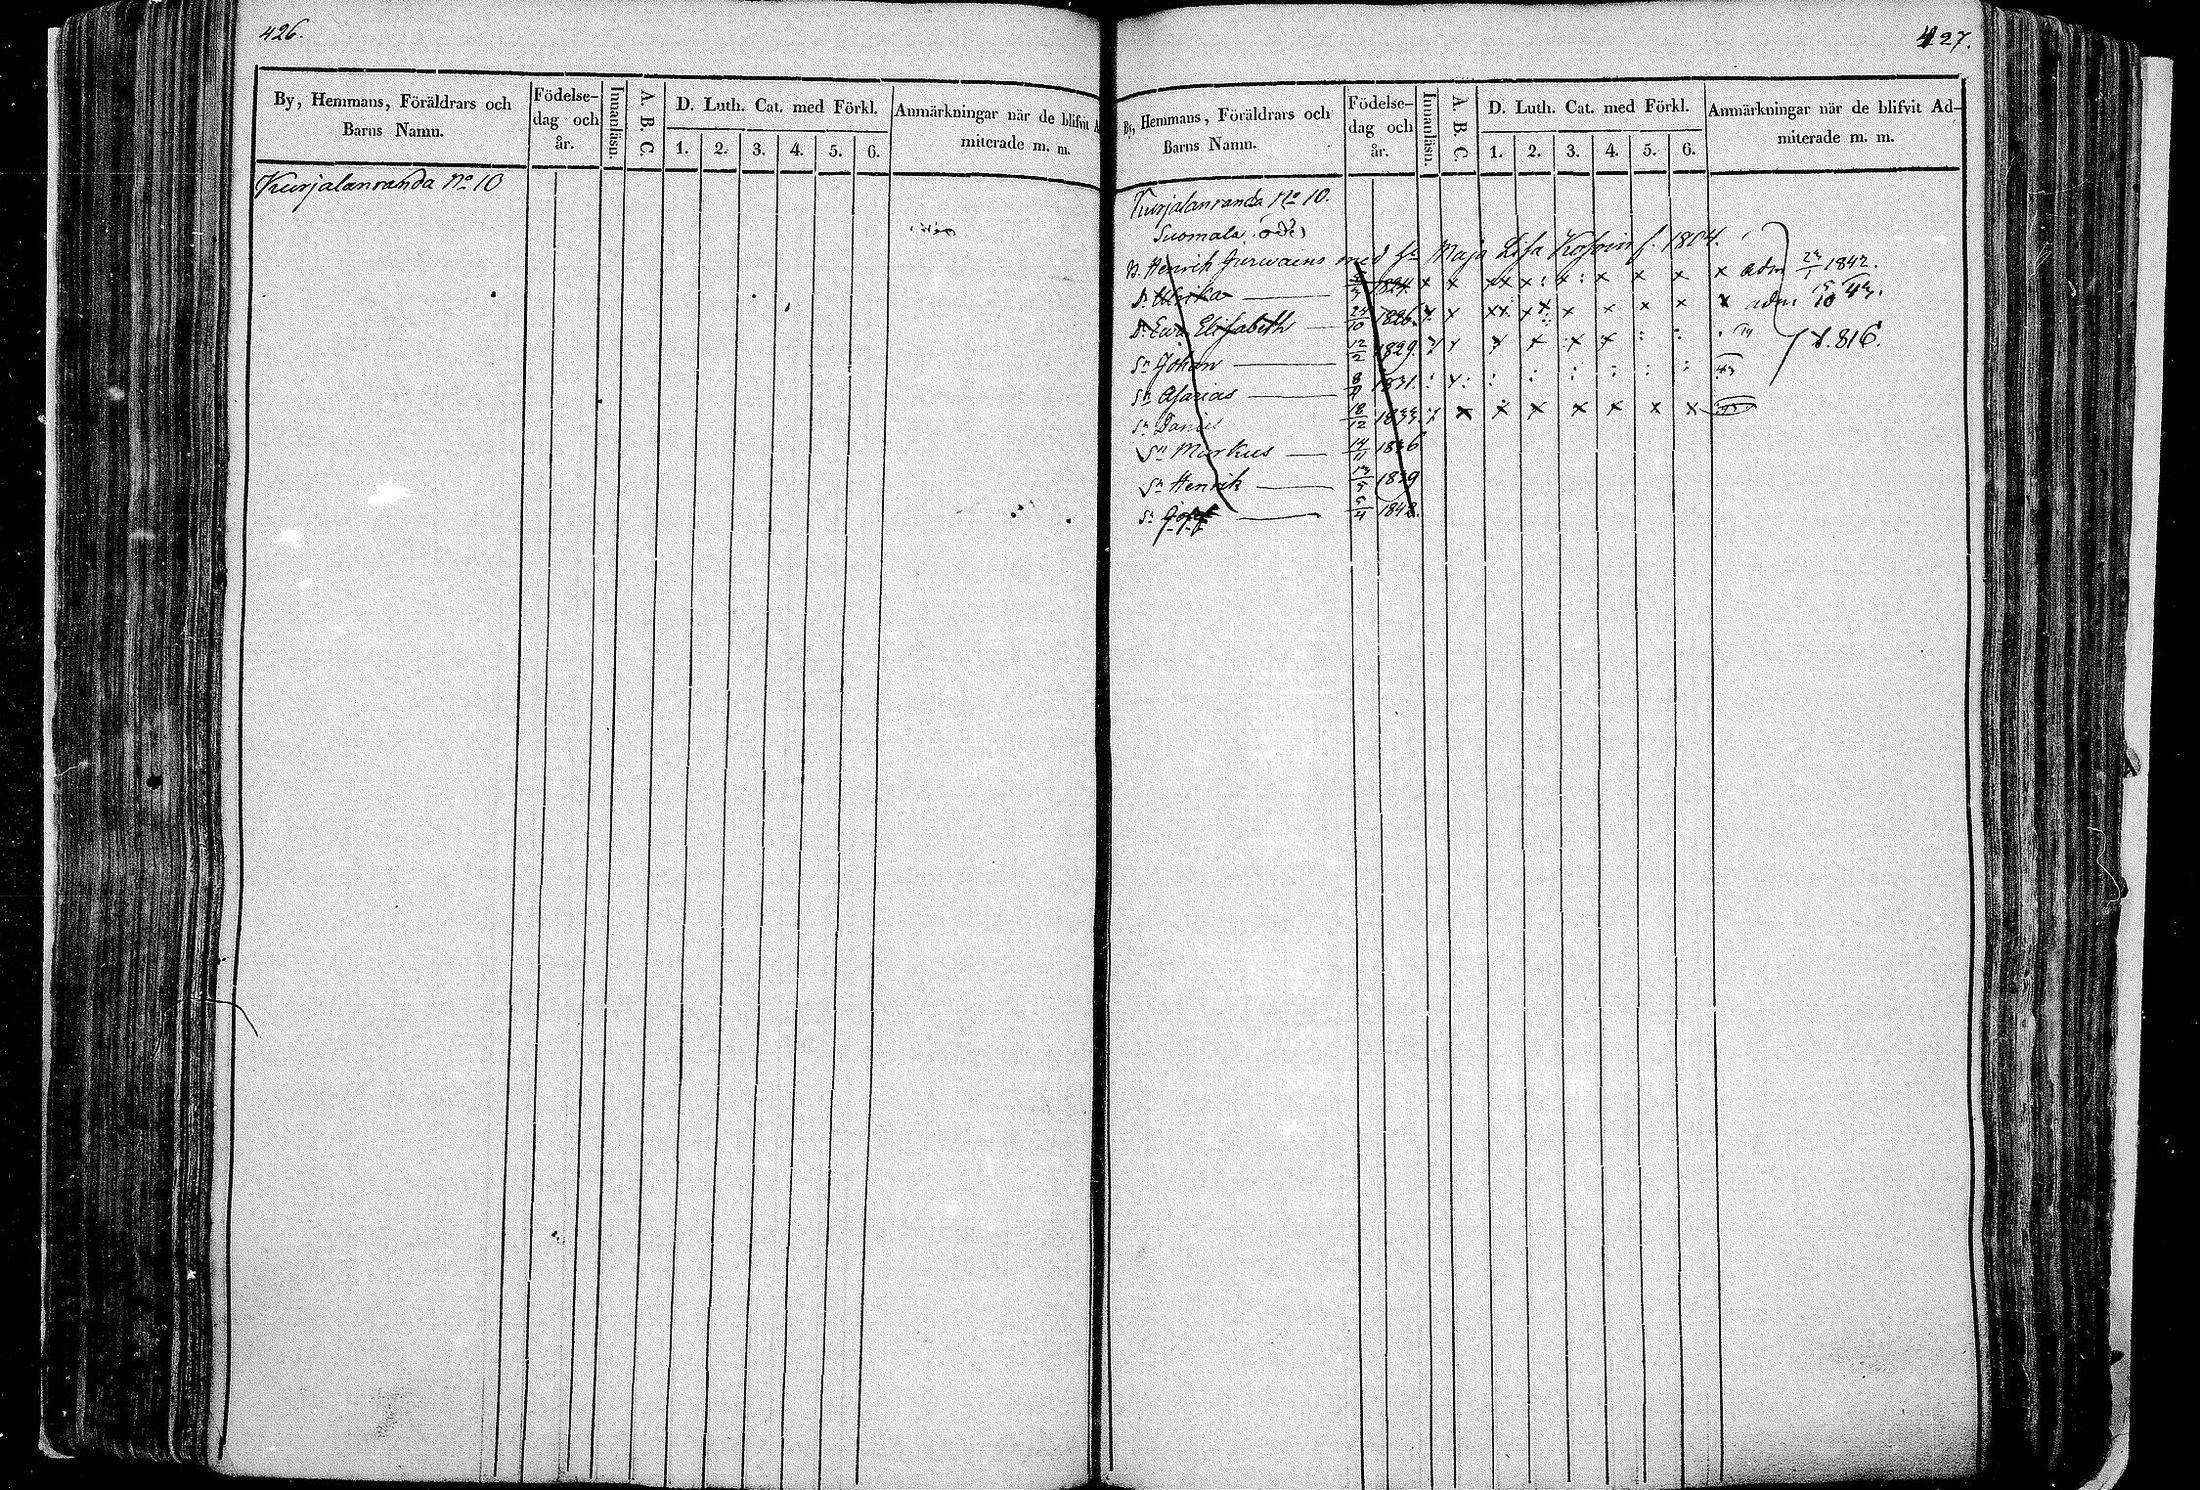 426.
By, Hemmans, Föräldrars och Barns Namn.
Födelse-dag och år.
Innanläsn.
A. B. C.
D. Luth. Cat. med Förkl.
1. 2. 3. 4. 5. 6.
Anmärkningar när de blifvit
miterade m. m.
Kurjalanranda No 10
427.
By, Hemmans, Föräldrars och Barns Namn.
Födelse-dag och år.
Innanläsn.
A. B. C.
D. Luth. Cat. med Förkl.
1. 2. 3. 4. 5. 6.
Anmärkningar när de blifvit Ad-
miterade m. m.
Kurjalanranda No 10.
Suomala
Henrik Jurvains med Maja Lisa f. 1804.
Dr Ulrika 1824. x x xx x : x : x x x x adm 23/1 1842.
Dr Eva Elisabeth 24/10 1826. x x xx x x x x x x x adm 43.
Sn Johan 12/2 1829. x x x x x x : :
816.
Sn Asarias 1831. : x : : : : : : : 43
Sn Daniel 18/12 1833. x x x x x x x x
Sn Markus 14/11 1836
Sn Henrik 13/5 1839
Sn Josef 1842.